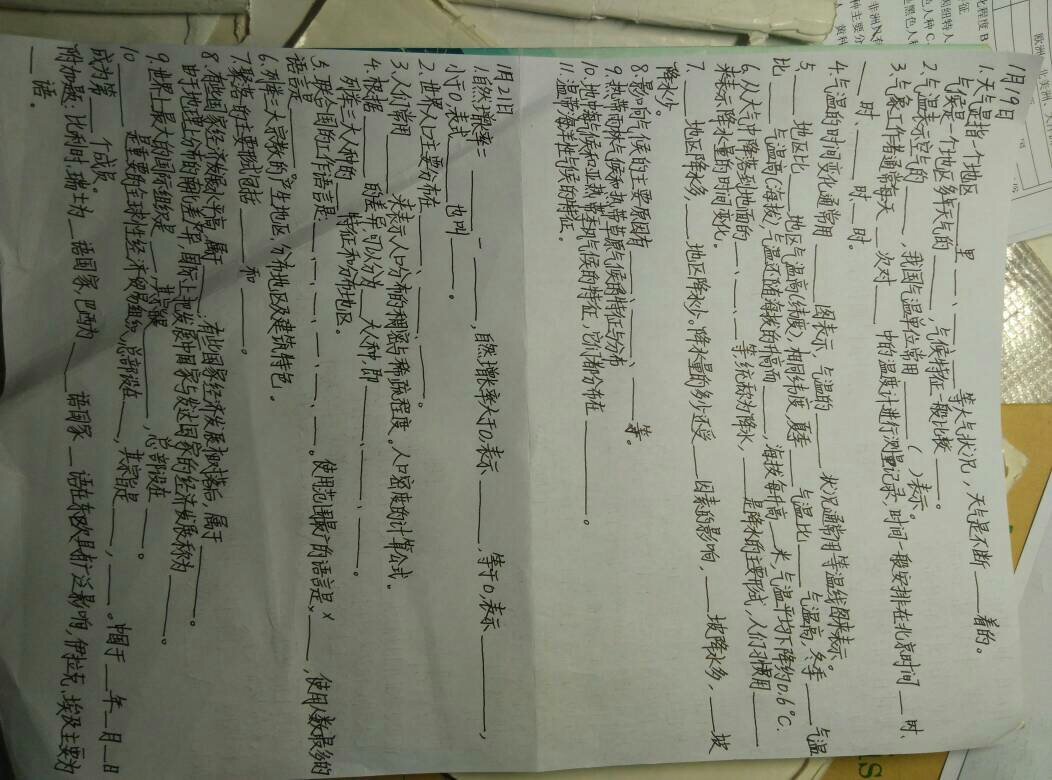 1月19日
1.天气是指一个地区____里____、____、____等大气状况，天气是不断____着的。
气候是一个地区多年天气的____，气候特征一般比较____。
2.气温表示空气的____，我国气温单位常用____（ ）表示。
3.气象工作者通常每天____次对____中的温度计进行测量记录，时间一般安排在北京时间____时、
____时、____时、____时。
4.气温的时间变化通常用____图表示，气温的____状况通常用等温线图来表示。
5.____地区比____地区气温高(纬度)，相同纬度，夏季____气温比____气温高，冬季____气温
比____气温高(海拔)，气温还随海拔的升高而____，海拔每升高____米，气温平均下降约0.6℃.
6.从大气中降落到地面的____、____、____等统称为降水，____是降水的主要形式，人们习惯用____
来表示降水量的时间变化。
7.____地区降水多，____地区降水少。降水量的多少还受____因素的影响，____坡降水多，____坡
降水少。
8.影响气候的主要原因有____、____、____等。
9.热带雨林气候和热带草原气候的特征与分布
10.地中海气候和亚热带季风气候的特征，它们都分布在____。
11.温带海洋性气候的特征。
1月21日
1.自然增长率=____－____，自然增长率大于0,表示____，等于0,表示____，
小于0,表示____也叫____。
2.世界人口主要分布在____、____、____、____。
3.人们常用____来表示人口分布的稠密与稀疏程度。人口密度的计算公式.
4.根据____的差异可以分为____大人种，即____、____、____。
列举三大人种的____特征和分布地区。
5.联合国的工作语言是____、____、____、____、____、____。使用范围最广的语言是____，使用人数最多的
语言是____
6.列举三大宗教的产生地区，分布地区及建筑特色。
7.聚落的主要形式包括____和____。
8.有些国家经济发展水平高，属于____，有些国家经济发展相对落后，属于____。
由于地理上分布的南北差异，国际上把发展中国家与发达国家的经济发展称为____。
9.世界上最大的国际组织是____，其宗旨____，总部设在____。
10.____是重要的全球性经济贸易组织，总部设在____，其宗旨是____，____。中国于____年____月____日
成为第____个成员。
附加题：比利时、瑞士为____语国家，巴西为____语国家____语在东欧具有广泛影响，伊拉克、埃及主要为
____语。